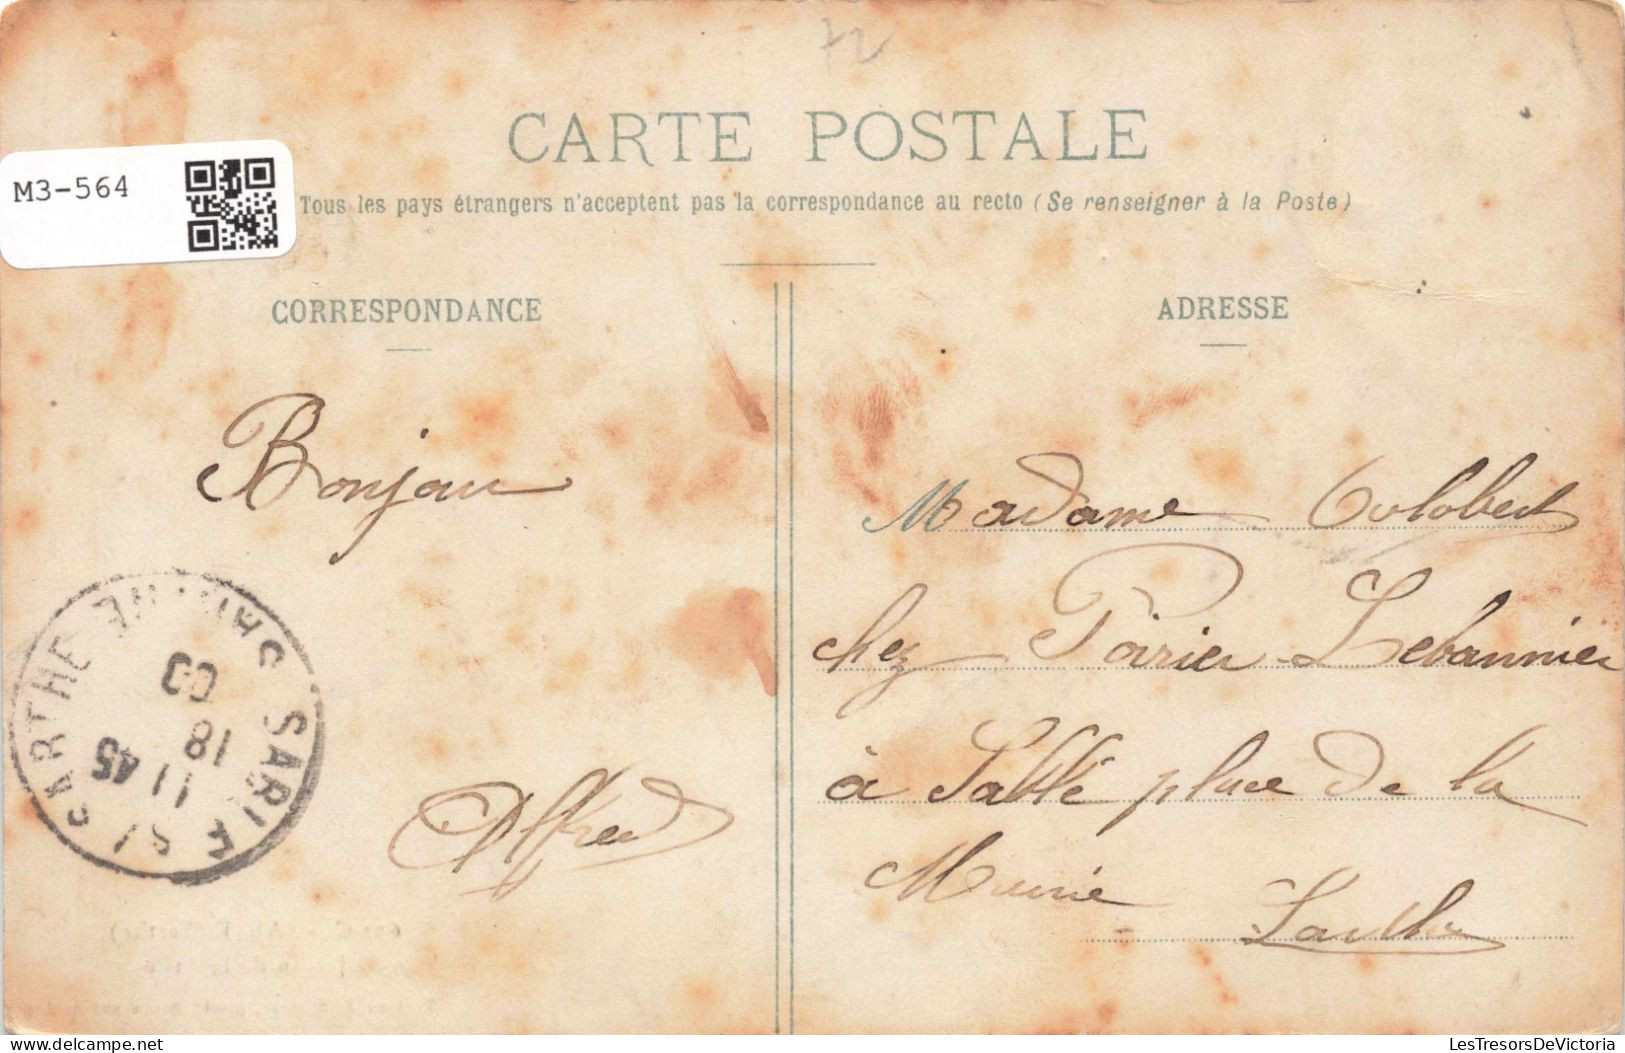 72
CARTE POSTALE
M3-564
Tous les pays étrangers n'acceptent pas la correspondance au recto (Se renseigner à la Poste)
CORRESPONDANCE
ADRESSE
Bonjour
Alfred
Madame Colobert
chez Poirier-Lebannier
à Sablé place de la
Mairie
Sarthe
SARTHE
18
11 45
delcampe.net
LesTresorsDeVictoria